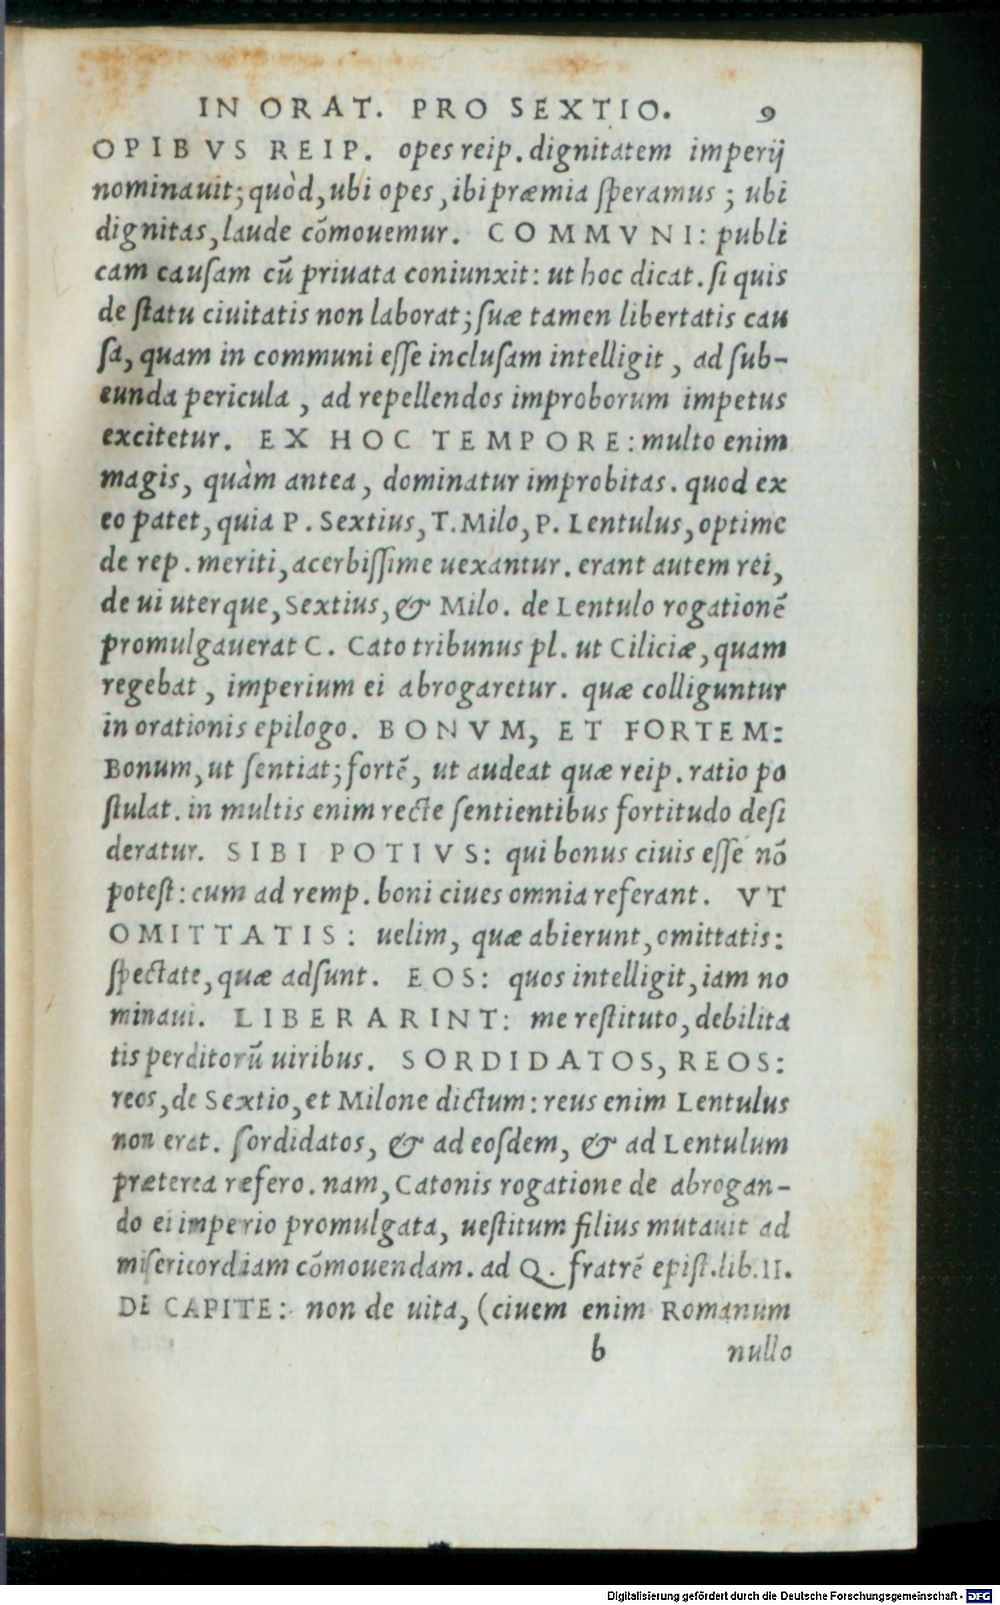 IN ORAT. PRO SEXTIO. 9
OPIBVS REIP. opes reip. dignitatem imperij
nominauit; quòd, ubi opes, ibi præmia speramus; ubi
dignitas, laude cōmouemur. COMMVNI: publi
cam causam cū priuata coniunxit: ut hoc dicat. si quis
de statu ciuitatis non laborat; suæ tamen libertatis cau
sa, quam in communi esse inclusam intelligit, ad sub-
eunda pericula, ad repellendos improborum impetus
excitetur. EX HOC TEMPORE: multo enim
magis, quàm antea, dominatur improbitas. quod ex
eo patet, quia P. Sextius, T. Milo, P. Lentulus, optime
de rep. meriti, acerbissime uexantur. erant autem rei,
de ui uterque, Sextius, & Milo. de Lentulo rogationē
promulgauerat C. Cato tribunus pl. ut Ciliciæ, quam
regebat, imperium ei abrogaretur. quæ colliguntur
in orationis epilogo. BONVM, ET FORTEM:
Bonum, ut sentiat; fortē, ut audeat quæ reip. ratio po
stulat. in multis enim recte sentientibus fortitudo desi
deratur. SIBI POTIVS: qui bonus ciuis esse nō
potest: cum ad remp. boni ciues omnia referant. VT
OMITTATIS: uelim, quæ abierunt, omittatis:
spectate, quæ adsunt. EOS: quos intelligit, iam no
minaui. LIBERARINT: me restituto, debilita
tis perditorū uiribus. SORDIDATOS, REOS:
reos, de Sextio, et Milone dictum: reus enim Lentulus
non erat. sordidatos, & ad eosdem, & ad Lentulum
præterea refero. nam, Catonis rogatione de abrogan-
do ei imperio promulgata, uestitum filius mutauit ad
misericordiam cōmouendam. ad Q. fratrē epist. lib. II.
DE CAPITE: non de uita, (ciuem enim Romanum
b nullo
Digitalisierung gefördert durch die Deutsche Forschungsgemeinschaft - DFG